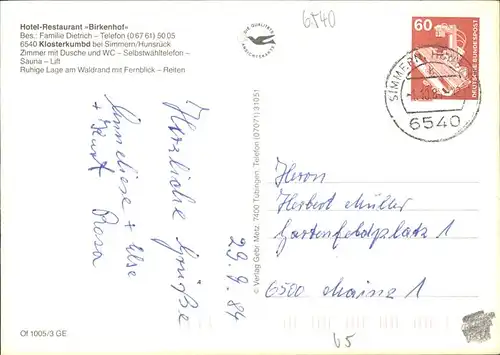 Hotel-Restaurant »Birkenhof«
Bes.: Familie Dietrich – Telefon (0 67 61) 50 05
6540 Klosterkumbd bei Simmern/Hunsrück
Zimmer mit Dusche und WC – Selbstwähltelefon –
Sauna – Lift
Ruhige Lage am Waldrand mit Fernblick – Reiten
DIE QUALITÄTS
ANSICHTSKARTE
6540
60
DEUTSCHE BUNDESPOST
SIMMERN, HUNSRÜCK
6540
Herzliche Grüße
Anneliese + Ilse
+ Rosa
29.9.84
© Verlag Gebr. Metz, 7400 Tübingen, Telefon (07071) 31051
Herrn
Herbert Müller
Gartenfeldplatz 1
6500 Mainz 1
65
Of 1005/3 GE